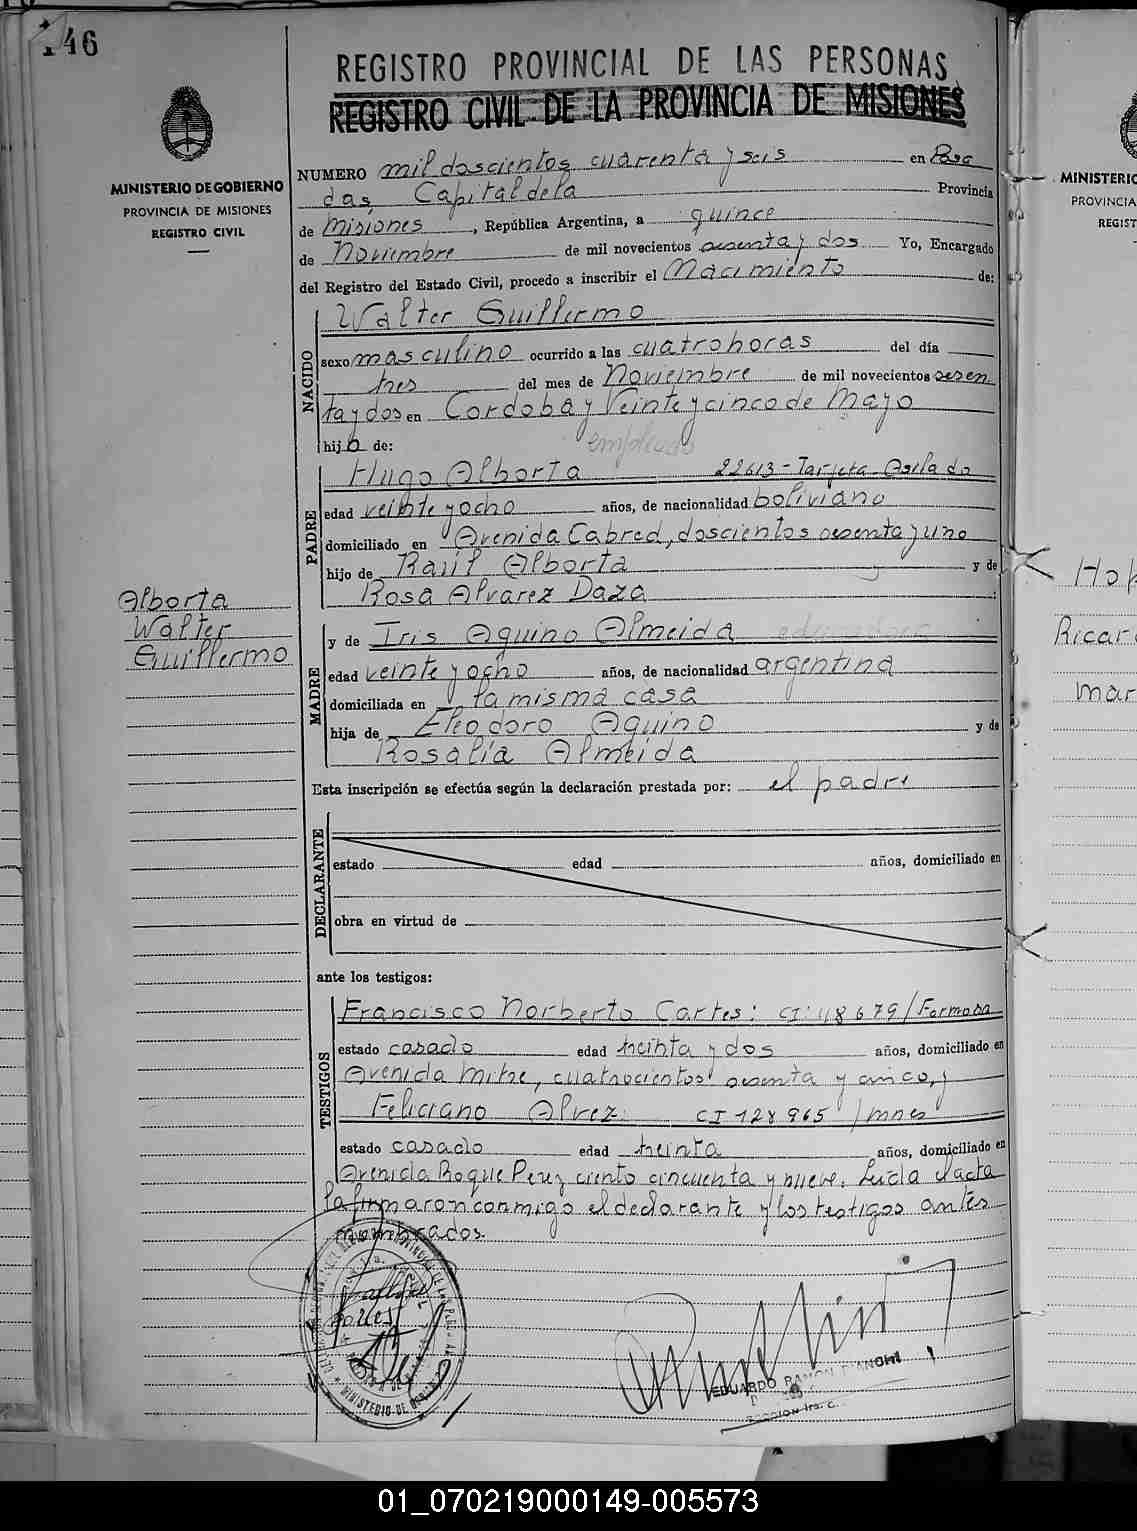 146
MINISTERIO DE GOBIERNO
PROVINCIA DE MISIONES
REGISTRO CIVIL
REGISTRO PROVINCIAL DE LAS PERSONAS
REGISTRO CIVIL DE LA PROVINCIA DE MISIONES
NUMERO mil doscientos cuarenta y seis en Posa
das, Capital de la Provincia
de Misiones, República Argentina, a quince
de Noviembre de mil novecientos sesenta y dos Yo, Encargado
del Registro del Estado Civil, procedo a inscribir el Nacimiento de:
NACIDO
Walter Guillermo
sexo masculino ocurrido a las cuatro horas del día
tres del mes de Noviembre de mil novecientos sesen
ta y dos en Cordoba y Veinte y cinco de Mayo
hijo de: empleado
PADRE
Hugo Alborta 22613-Tarjeta Asilado
edad veinte y ocho años, de nacionalidad boliviano
domiciliado en Avenida Cabred, doscientos sesenta y uno
hijo de Raúl Alborta y de
Rosa Alvarez Daza
Alborta
Walter
Guillermo
MADRE
y de Iris Aquino Almeida
edad veinte y ocho años, de nacionalidad argentina
domiciliada en la misma casa
hija de Eleodoro Aquino y de
Rosalía Almeida
Esta inscripción se efectúa según la declaración prestada por: el padre
DECLARANTE
estado edad años, domiciliado en
obra en virtud de
ante los testigos:
TESTIGOS
Francisco Norberto Cartes: CI: 48679/Formosa
estado casado edad treinta y dos años, domiciliado en
Avenida Mitre, cuatrocientos sesenta y cinco, y
Feliciano Alvez: CI 128965/mnes
estado casado edad treinta años, domiciliado en
Avenida Roque Perez ciento cincuenta y nueve. Leída el acta
la firmaron conmigo el declarante y los testigos antes
nombrados.
EDUARDO RAMON BIANCHI
MINISTERIO DE
MINISTERIO
PROVINCIA
REGIST
Ricar
mar
01_070219000149-005573